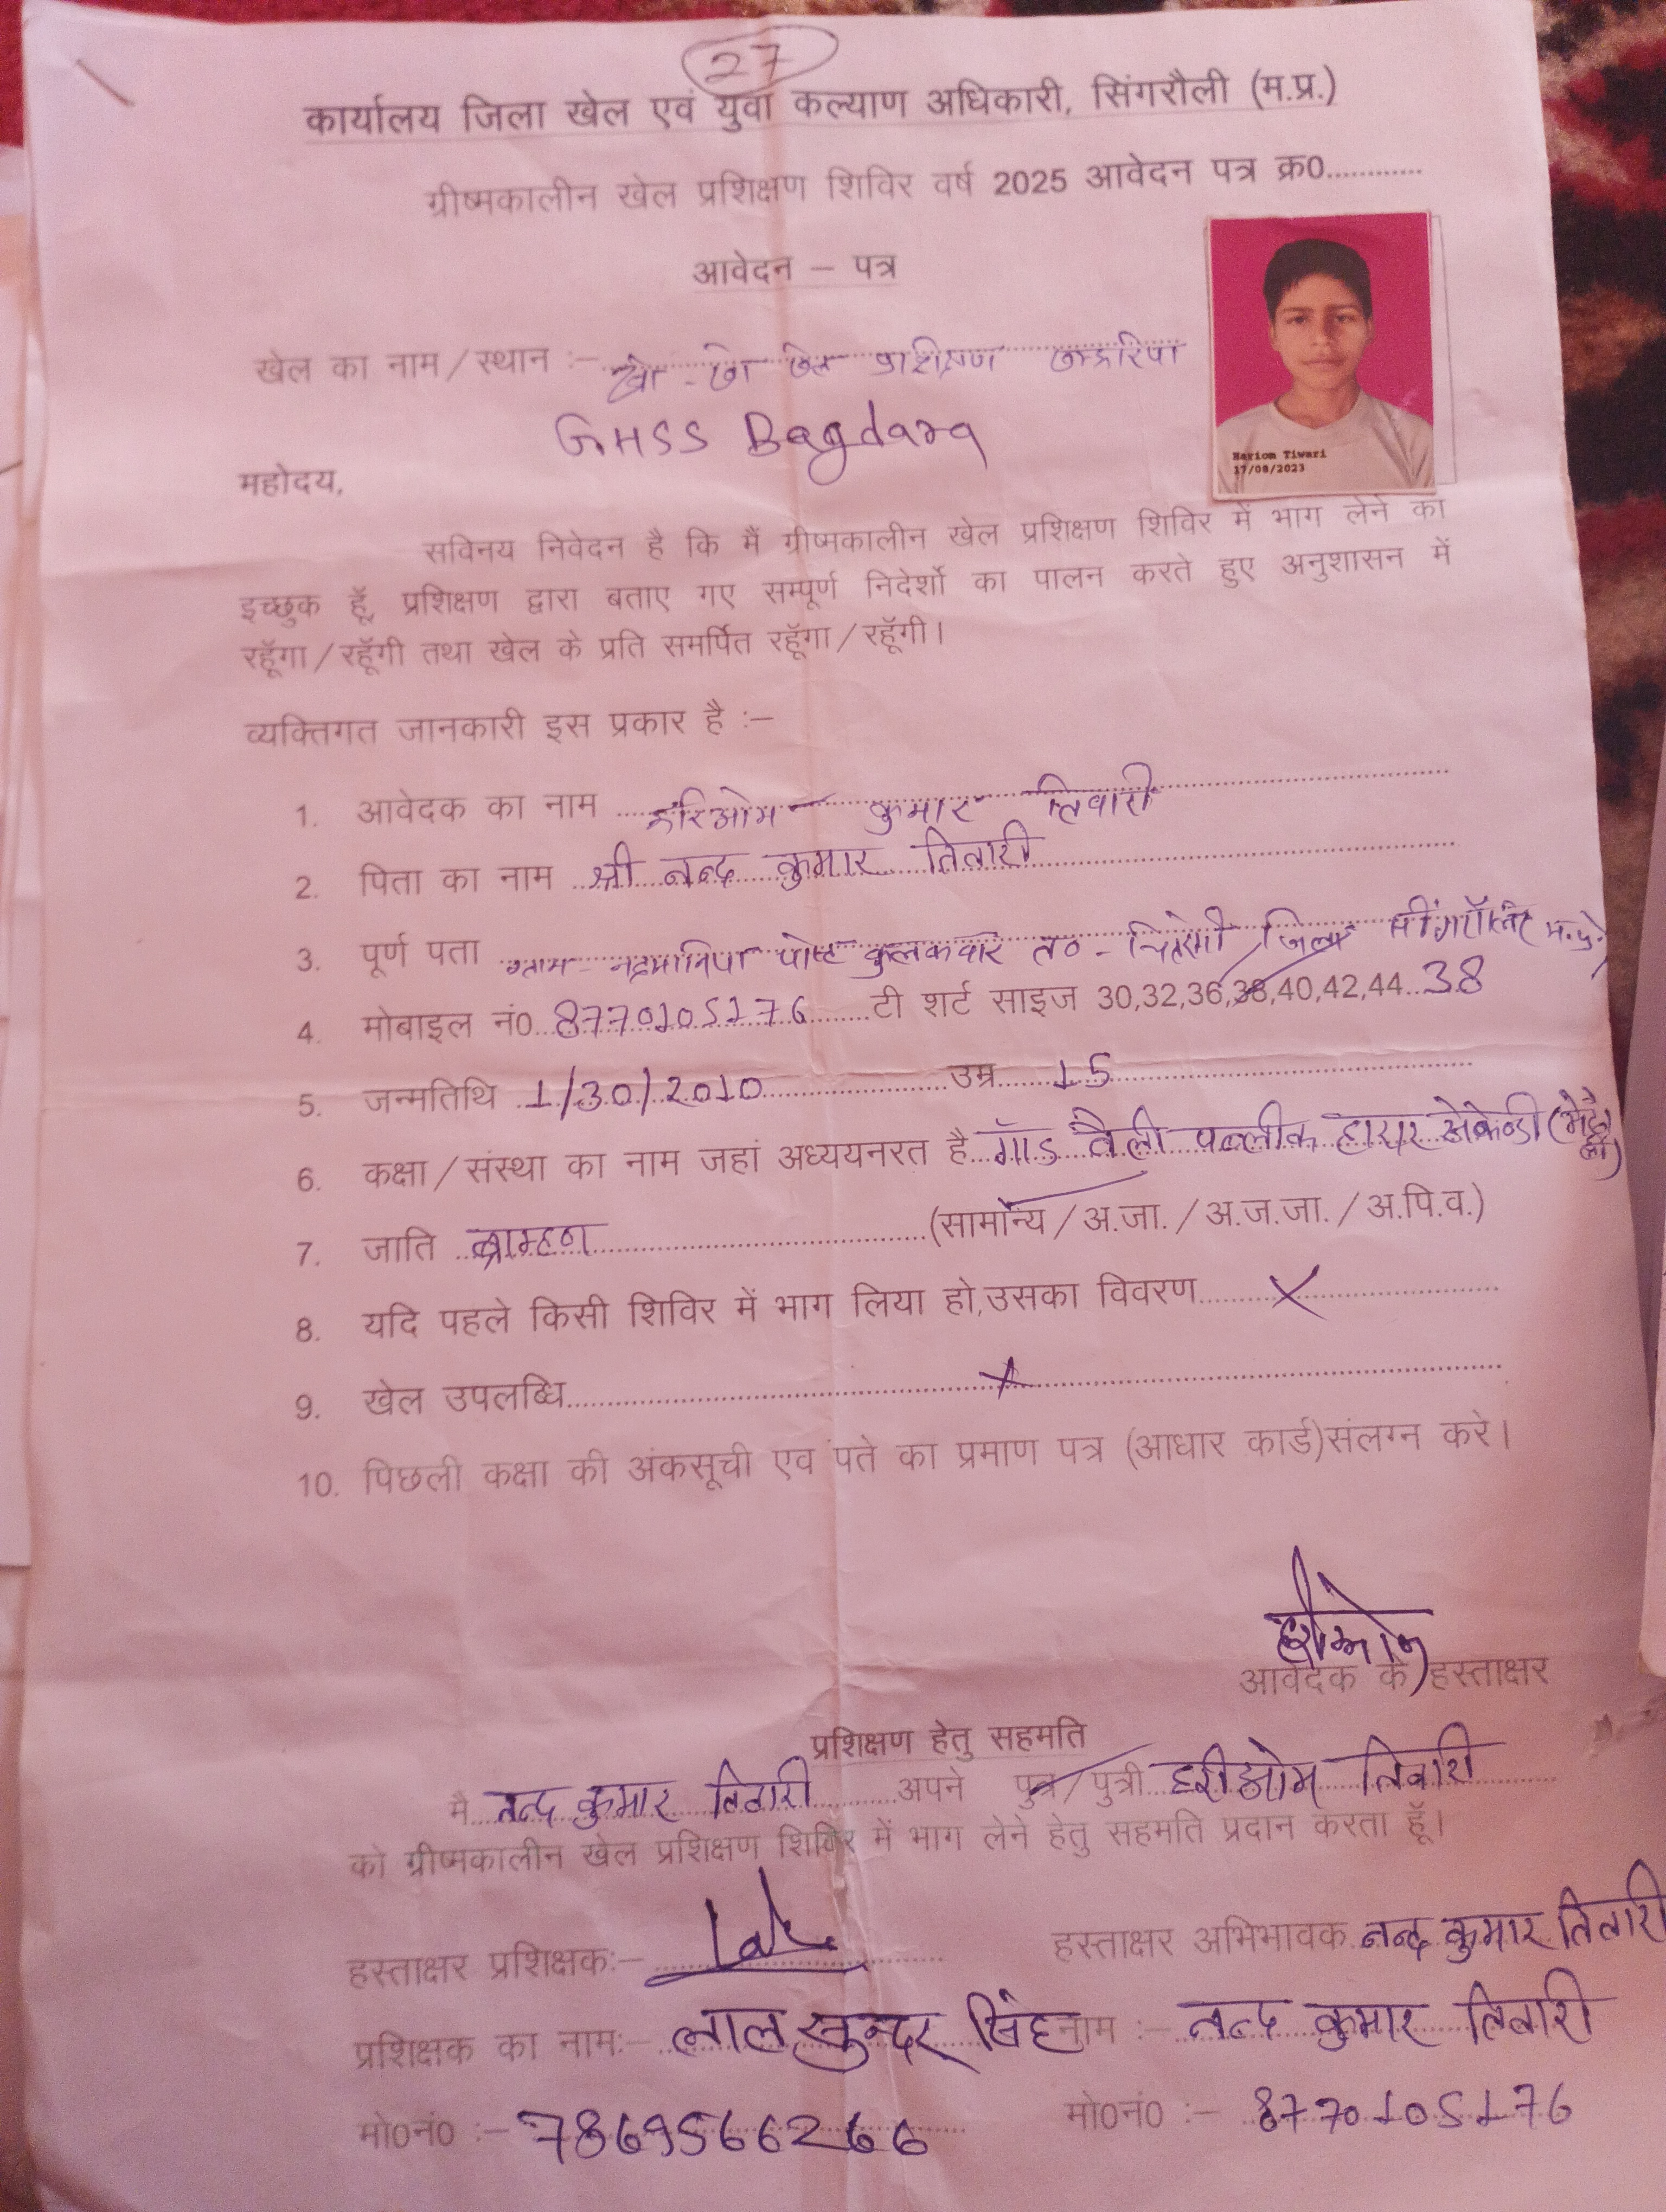 27
कार्यालय जिला खेल एवं युवा कल्याण अधिकारी, सिंगरौली (म.प्र.)
ग्रीष्मकालीन खेल प्रशिक्षण शिविर वर्ष 2025 आवेदन पत्र क्र0............
आवेदन – पत्र
खेल का नाम / स्थान :– खो - खो खेल
GHSS Bagdara
Hariom Tiwari
17/08/2023
महोदय,
सविनय निवेदन है कि मैं ग्रीष्मकालीन खेल प्रशिक्षण शिविर में भाग लेने का
इच्छुक हूँ, प्रशिक्षण द्वारा बताए गए सम्पूर्ण निदेर्शो का पालन करते हुए अनुशासन में
रहूँगा / रहूँगी तथा खेल के प्रति समर्पित रहूँगा / रहूँगी।
व्यक्तिगत जानकारी इस प्रकार है :–
1. आवेदक का नाम हरिओम कुमार तिवारी
2. पिता का नाम श्री नन्द कुमार तिवारी
3. पूर्ण पता ग्राम - पोस्ट कुलकवार त० - चितरंगी जिला म.प्र.
4. मोबाइल नं0 8770105176 टी शर्ट साइज 30,32,36,38,40,42,44..38
5. जन्मतिथि 1/30/2010 उम्र 15
6. कक्षा / संस्था का नाम जहां अध्ययनरत है गॉड वैली पब्लीक हायर सेकेन्डी
7. जाति ब्राम्हण (सामान्य / अ.जा. / अ.ज.जा. / अ.पि.व.)
8. यदि पहले किसी शिविर में भाग लिया हो,उसका विवरण X
9. खेल उपलब्धि X
10. पिछली कक्षा की अंकसूची एव पते का प्रमाण पत्र (आधार कार्ड)संलग्न करे।
हरीओम
आवेदक के हस्ताक्षर
प्रशिक्षण हेतु सहमति
मै नन्द कुमार तिवारी अपने पुत्र / पुत्री हरीओम तिवारी
को ग्रीष्मकालीन खेल प्रशिक्षण शिविर में भाग लेने हेतु सहमति प्रदान करता हूँ।
हस्ताक्षर प्रशिक्षक:– हस्ताक्षर अभिभावक नन्द कुमार तिवारी
प्रशिक्षक का नाम:– लाल सुन्दर सिंह नाम :– नन्द कुमार तिवारी
मो0नं0 :– 7869566266 मो0नं0 :– 8770105176